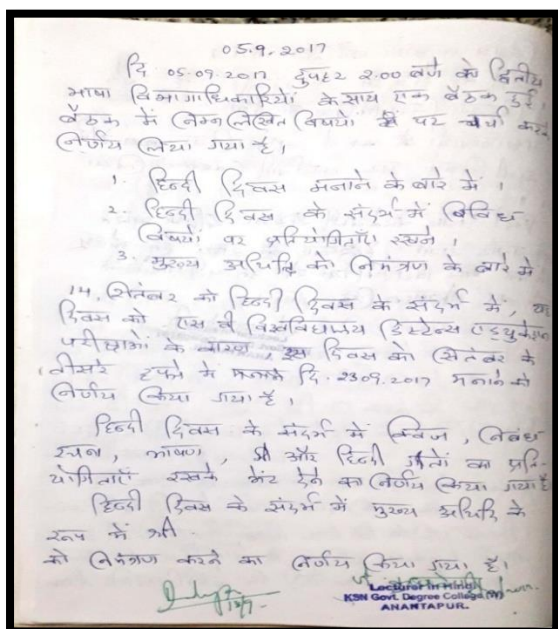 05.9.2017
दि 05.09.2017 दुपहर 2.00 बजे को द्वितीय
भाषा विभागाधिकारियों के साथ एक बैठक हुई,
बैठक में निम्नलिखित विषयों पर चर्चा करके
निर्णय लिया गया है।
1. हिन्दी दिवस मनाने के बारे में ।
2. हिन्दी दिवस के संदर्भ में विविध
विषयों पर प्रतियोगिताएँ रखने ।
3. मुख्य अथिति को निमंत्रण के बारे में
14, सितंबर को हिन्दी दिवस के संदर्भ में,
दिवस को एस वी विश्वविद्यालय डिस्टेन्स एडुकेशन
परीक्षाओं के कारण, इस दिवस को सितंबर के
तीसरे हफ्ते में दि. 23.09.2017 मनाने को
निर्णय किया गया है ।
हिन्दी दिवस के संदर्भ में क्विज, निबंध
रचना, भाषण, और हिन्दी गीतों का प्रति-
योगिताएँ रखके भेंट देने का निर्णय किया गया है
हिन्दी दिवस के संदर्भ में मुख्य अथिति के
रूप में श्री
को निमंत्रण करने का निर्णय किया गया है।
Lecturer in Hindi
KSN Govt. Degree College (W)
ANANTAPUR.